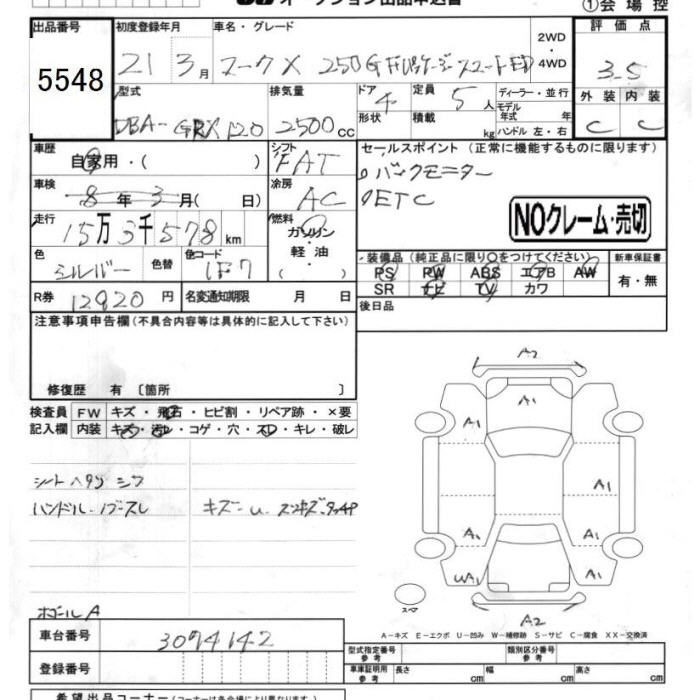 オークション出品申込書
①会場控
出品番号
5548
初度登録年月
21 3月
車名・グレード
マークX 250G Fパッケージ スマートED
2WD
・
4WD
評価点
3.5
外装 内装
C C
型式
DBA-GRX120
排気量
2500cc
ドア 4
形状
定員 5人
積載 kg
ディーラー・並行
モデル
年式 年
ハンドル 左・右
車歴
自家用・( )
シフト
FAT
セールスポイント (正常に機能するものに限ります)
バックモニター
ETC
NOクレーム・売切
車検
8年3月( 日)
冷房
AC
走行
15万3千578km
燃料
ガソリン
・
軽油
( )
色
シルバー
色替
色コード
1F7
装備品(純正品に限り○をつけてください)
PS PW ABS エアB AW
SR ナビ TV カワ
新車保証書
有・無
R券 12920円
名変通知期限 月 日
後日品
注意事項申告欄(不具合内容等は具体的に記入して下さい)
修復歴 有〔箇所 〕
検査員 FW キズ・飛石・ヒビ割・リペア跡・×要
記入欄 内装 キズ・汚レ・コゲ・穴・スレ・キレ・破レ
シート ヘタリ シワ
ハンドル・ノブ スレ
キズ U
ボデー A
A2
A1
A1
A1
A1
A1
A1
UA1
A1
スペア
A2
A-キズ E-エクボ U-凹み W-補修跡 S-サビ C-腐食 XX-交換済
車台番号
3074142
登録番号
型式指定番号
参考
類別区分番号
参考
車庫証明用
参考
長さ cm 幅 cm 高さ cm
希望出品コーナー(コーナーは各会場により異なります)